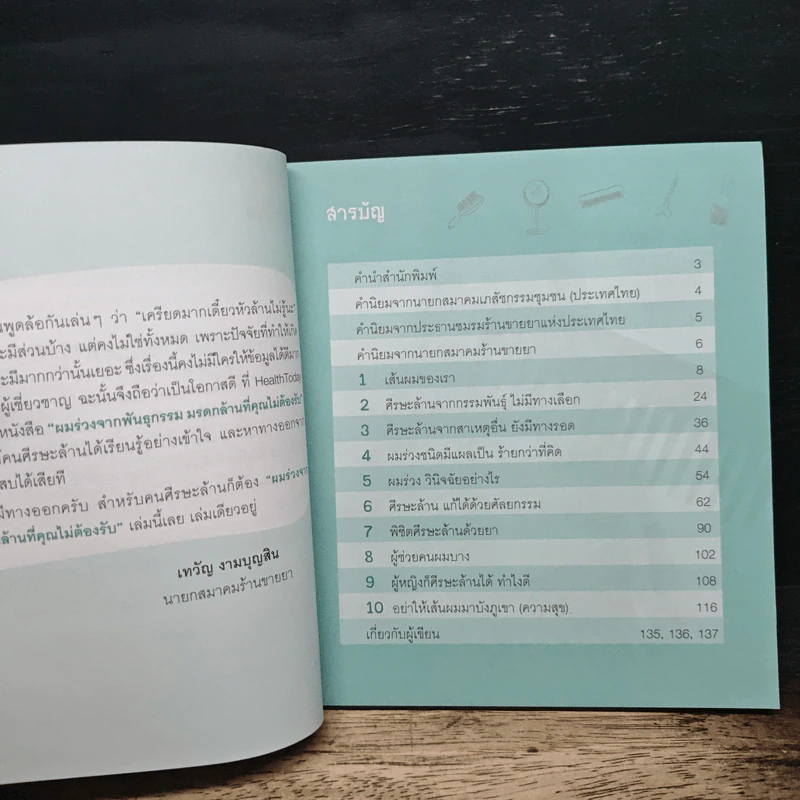 นพูดล้อกันเล่นๆ ว่า "เครียดมากเดี๋ยวหัวล้านไม่รู้นะ"
ะมีส่วนบ้าง แต่คงไม่ใช่ทั้งหมด เพราะปัจจัยที่ทำให้เกิด
ะมีมากกว่านั้นเยอะ ซึ่งเรื่องนี้คงไม่มีใครให้ข้อมูลได้ดีมาก
ผู้เชี่ยวชาญ ฉะนั้นจึงถือว่าเป็นโอกาสดี ที่ HealthToday
หนังสือ "ผมร่วงจากพันธุกรรม มรดกล้านที่คุณไม่ต้องรับ"
ห้คนศีรษะล้านได้เรียนรู้อย่างเข้าใจ และหาทางออกจาก
สบได้เสียที
มีทางออกครับ สำหรับคนศีรษะล้านก็ต้อง "ผมร่วงจาก
ล้านที่คุณไม่ต้องรับ" เล่มนี้เลย เล่มเดียวอยู่
เทวัญ งามบุญสิน
นายกสมาคมร้านขายยา
สารบัญ
คำนำสำนักพิมพ์ 3
คำนิยมจากนายกสมาคมเภสัชกรรมชุมชน (ประเทศไทย) 4
คำนิยมจากประธานชมรมร้านขายยาแห่งประเทศไทย 5
คำนิยมจากนายกสมาคมร้านขายยา 6
1 เส้นผมของเรา 8
2 ศีรษะล้านจากกรรมพันธุ์ ไม่มีทางเลือก 24
3 ศีรษะล้านจากสาเหตุอื่น ยังมีทางรอด 36
4 ผมร่วงชนิดมีแผลเป็น ร้ายกว่าที่คิด 44
5 ผมร่วง วินิจฉัยอย่างไร 54
6 ศีรษะล้าน แก้ได้ด้วยศัลยกรรม 62
7 พิชิตศีรษะล้านด้วยยา 90
8 ผู้ช่วยคนผมบาง 102
9 ผู้หญิงก็ศีรษะล้านได้ ทำไงดี 108
10 อย่าให้เส้นผมมาบังภูเขา (ความสุข) 116
เกี่ยวกับผู้เขียน 135, 136, 137